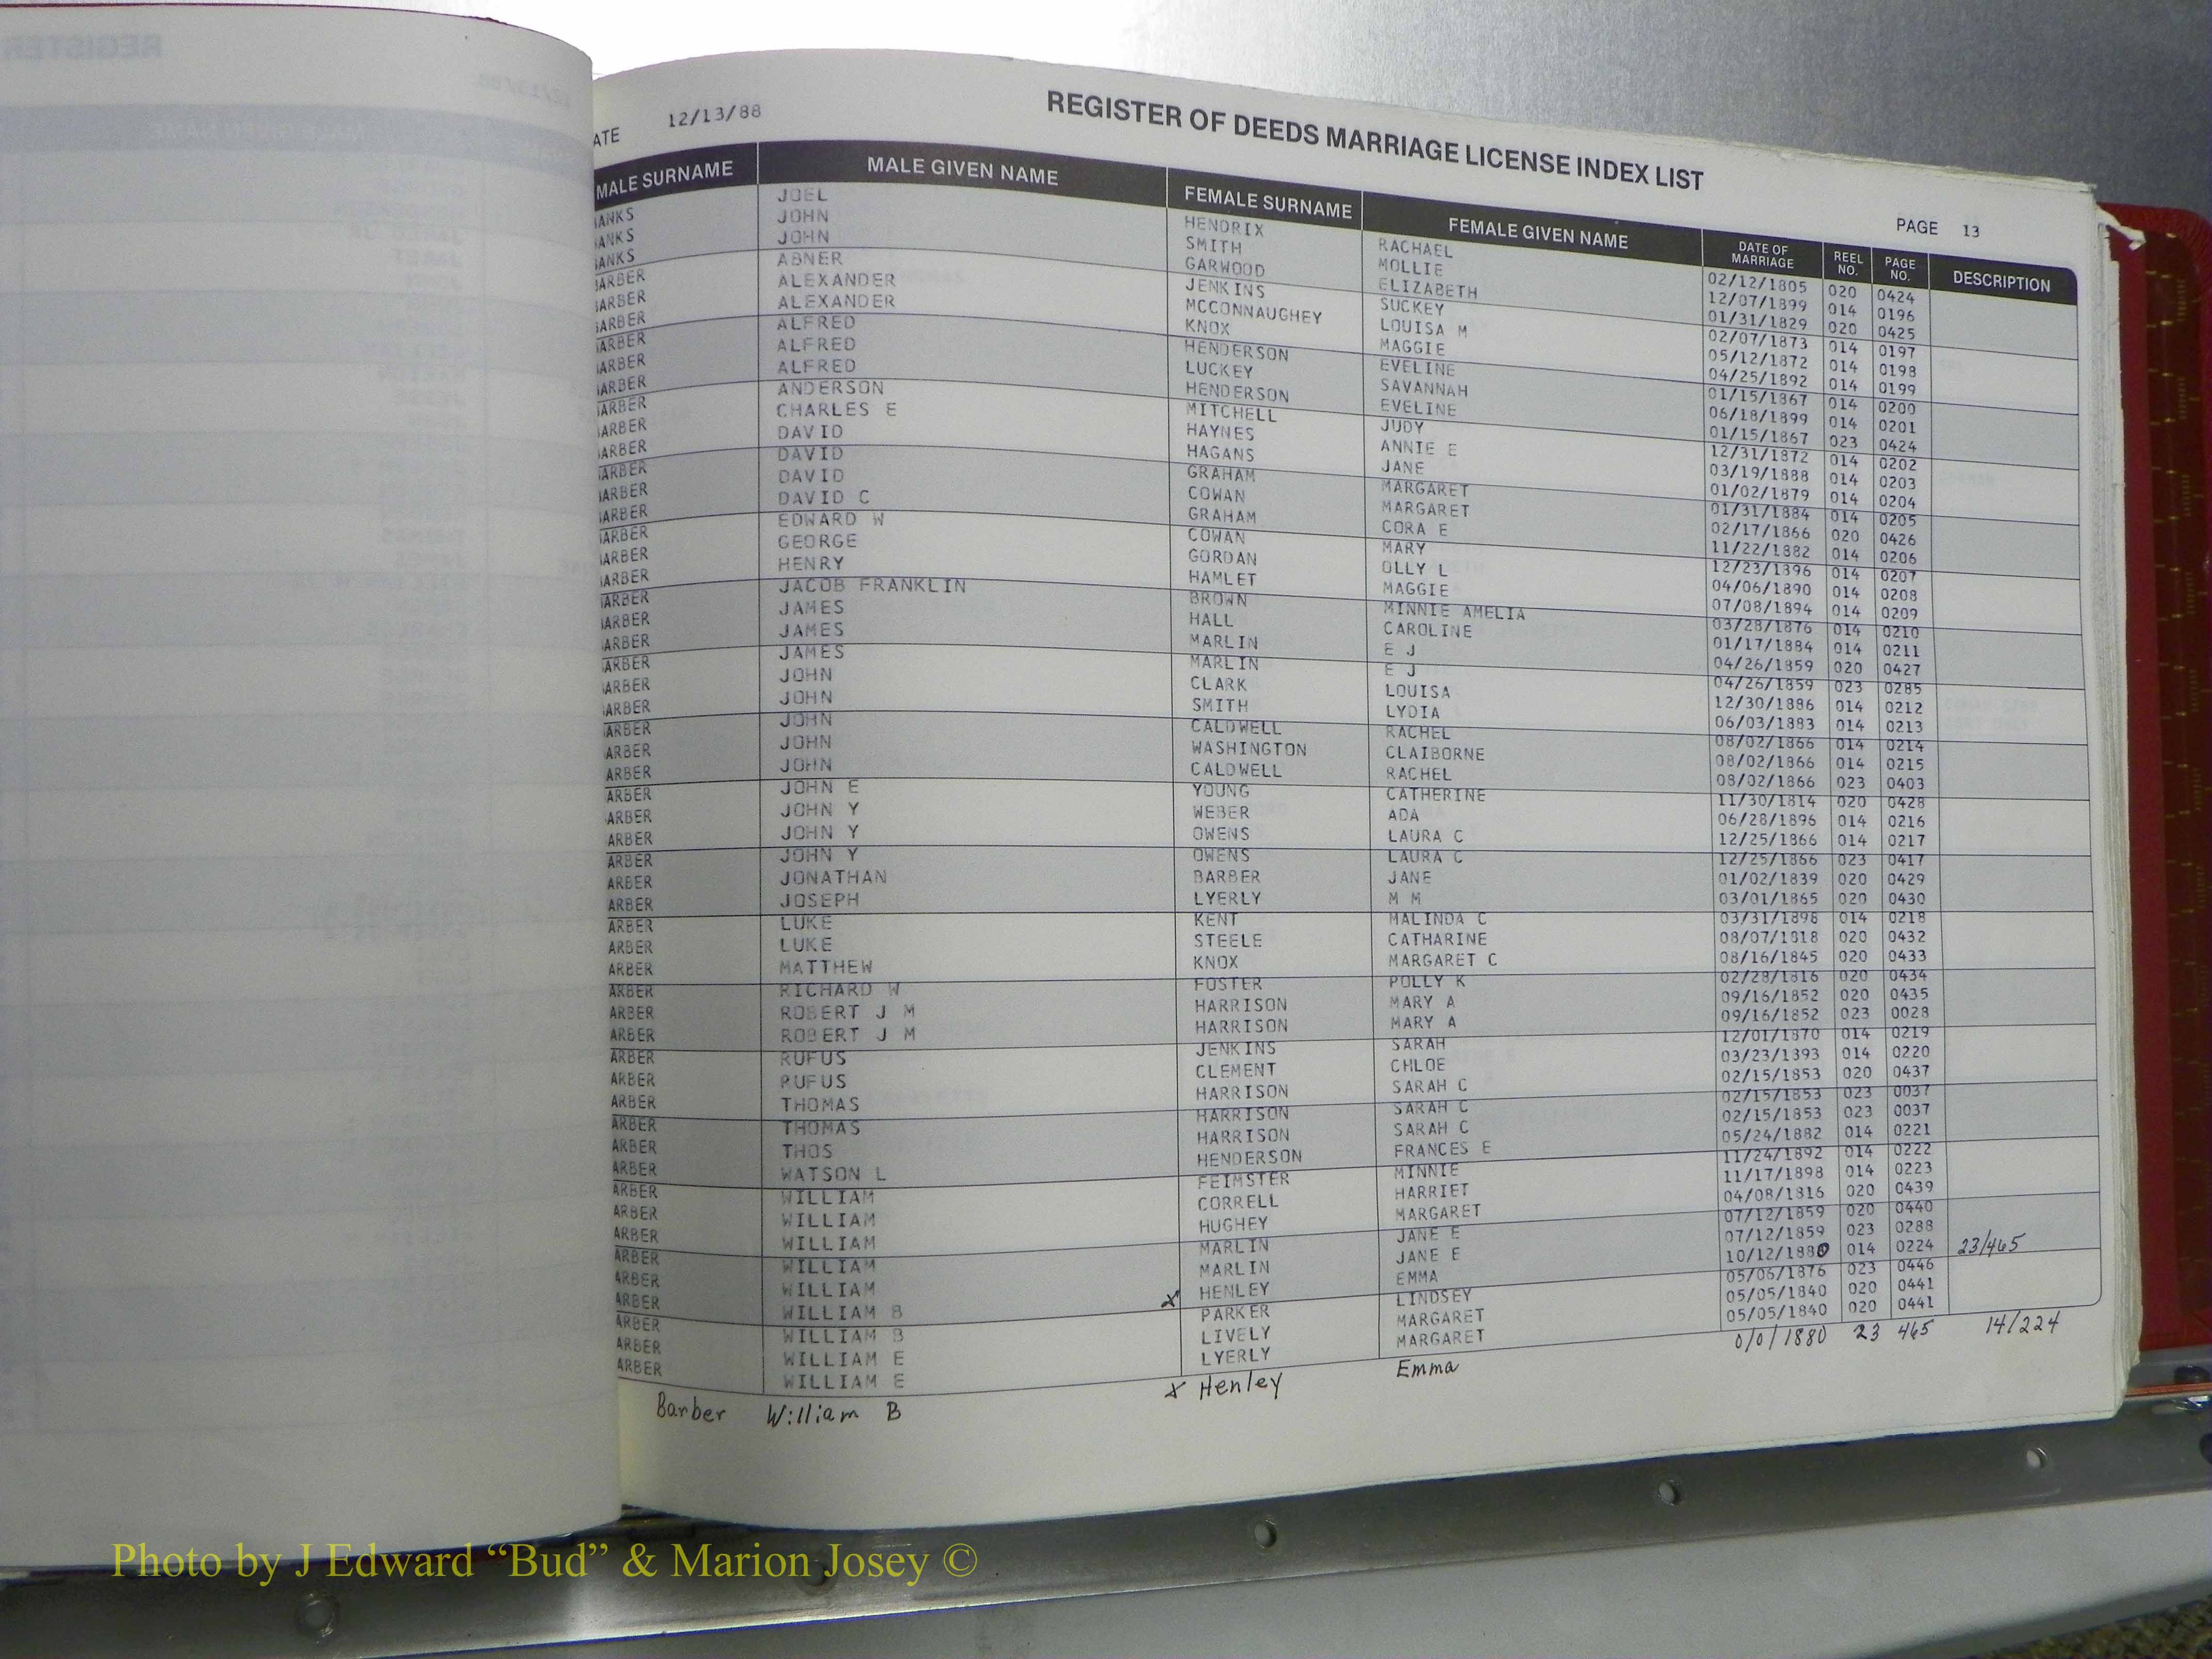 REGISTER
12/13/88
ATE 12/13/88 REGISTER OF DEEDS MARRIAGE LICENSE INDEX LIST PAGE 13
MALE SURNAME MALE GIVEN NAME FEMALE SURNAME FEMALE GIVEN NAME DATE OF MARRIAGE REEL NO. PAGE NO. DESCRIPTION
ANKS JOEL HENDRIX RACHAEL 02/12/1805 020 0424
ANKS JOHN SMITH MOLLIE 12/07/1899 014 0196
ANKS JOHN GARWOOD ELIZABETH 01/31/1829 020 0425
ARBER ABNER JENKINS SUCKEY 02/07/1873 014 0197
ARBER ALEXANDER MCCONNAUGHEY LOUISA M 05/12/1872 014 0198
ARBER ALEXANDER KNOX MAGGIE 04/25/1892 014 0199
ARBER ALFRED HENDERSON EVELINE 01/15/1867 014 0200
ARBER ALFRED LUCKEY SAVANNAH 06/18/1899 014 0201
ARBER ALFRED HENDERSON EVELINE 01/15/1867 023 0424
ARBER ANDERSON MITCHELL JUDY 12/31/1872 014 0202
ARBER CHARLES E HAYNES ANNIE E 03/19/1888 014 0203
ARBER DAVID HAGANS JANE 01/02/1879 014 0204
ARBER DAVID GRAHAM MARGARET 01/31/1884 014 0205
ARBER DAVID COWAN MARGARET 02/17/1866 020 0426
ARBER DAVID C GRAHAM CORA E 11/22/1882 014 0206
ARBER EDWARD W COWAN MARY 12/23/1896 014 0207
ARBER GEORGE GORDAN OLLY L 04/06/1890 014 0208
ARBER HENRY HAMLET MAGGIE 07/08/1894 014 0209
ARBER JACOB FRANKLIN BROWN MINNIE AMELIA 03/28/1876 014 0210
ARBER JAMES HALL CAROLINE 01/17/1884 014 0211
ARBER JAMES MARLIN E J 04/26/1859 020 0427
ARBER JAMES MARLIN E J 04/26/1859 023 0285
ARBER JOHN CLARK LOUISA 12/30/1886 014 0212
ARBER JOHN SMITH LYDIA 06/03/1883 014 0213
ARBER JOHN CALDWELL RACHEL 08/02/1866 014 0214
ARBER JOHN WASHINGTON CLAIBORNE 08/02/1866 014 0215
ARBER JOHN CALDWELL RACHEL 08/02/1866 023 0403
ARBER JOHN E YOUNG CATHERINE 11/30/1814 020 0428
ARBER JOHN Y WEBER ADA 06/28/1896 014 0216
ARBER JOHN Y OWENS LAURA C 12/25/1866 014 0217
ARBER JOHN Y OWENS LAURA C 12/25/1866 023 0417
ARBER JONATHAN BARBER JANE 01/02/1839 020 0429
ARBER JOSEPH LYERLY M M 03/01/1865 020 0430
ARBER LUKE KENT MALINDA C 03/31/1898 014 0218
ARBER LUKE STEELE CATHARINE 08/07/1818 020 0432
ARBER MATTHEW KNOX MARGARET C 08/16/1845 020 0433
ARBER RICHARD W FOSTER POLLY K 02/28/1816 020 0434
ARBER ROBERT J M HARRISON MARY A 09/16/1852 020 0435
ARBER ROBERT J M HARRISON MARY A 09/16/1852 023 0028
ARBER RUFUS JENKINS SARAH 12/01/1870 014 0219
ARBER RUFUS CLEMENT CHLOE 03/23/1893 014 0220
ARBER THOMAS HARRISON SARAH C 02/15/1853 020 0437
ARBER THOMAS HARRISON SARAH C 02/15/1853 023 0037
ARBER THOS HARRISON SARAH C 02/15/1853 023 0037
ARBER WATSON L HENDERSON FRANCES E 05/24/1882 014 0221
ARBER WILLIAM FEIMSTER MINNIE 11/24/1892 014 0222
ARBER WILLIAM CORRELL HARRIET 11/17/1898 014 0223
ARBER WILLIAM HUGHEY MARGARET 04/08/1816 020 0439
ARBER WILLIAM MARLIN JANE E 07/12/1859 020 0440
ARBER WILLIAM MARLIN JANE E 07/12/1859 023 0288
ARBER WILLIAM B x HENLEY EMMA 10/12/1880 014 0224 23/465
ARBER WILLIAM B PARKER LINDSEY 05/06/1876 023 0446
ARBER WILLIAM E LIVELY MARGARET 05/05/1840 020 0441
ARBER WILLIAM E LYERLY MARGARET 05/05/1840 020 0441
Barber William B x Henley Emma 0/0/1880 23 465 14/224
Photo by J Edward “Bud” & Marion Josey ©